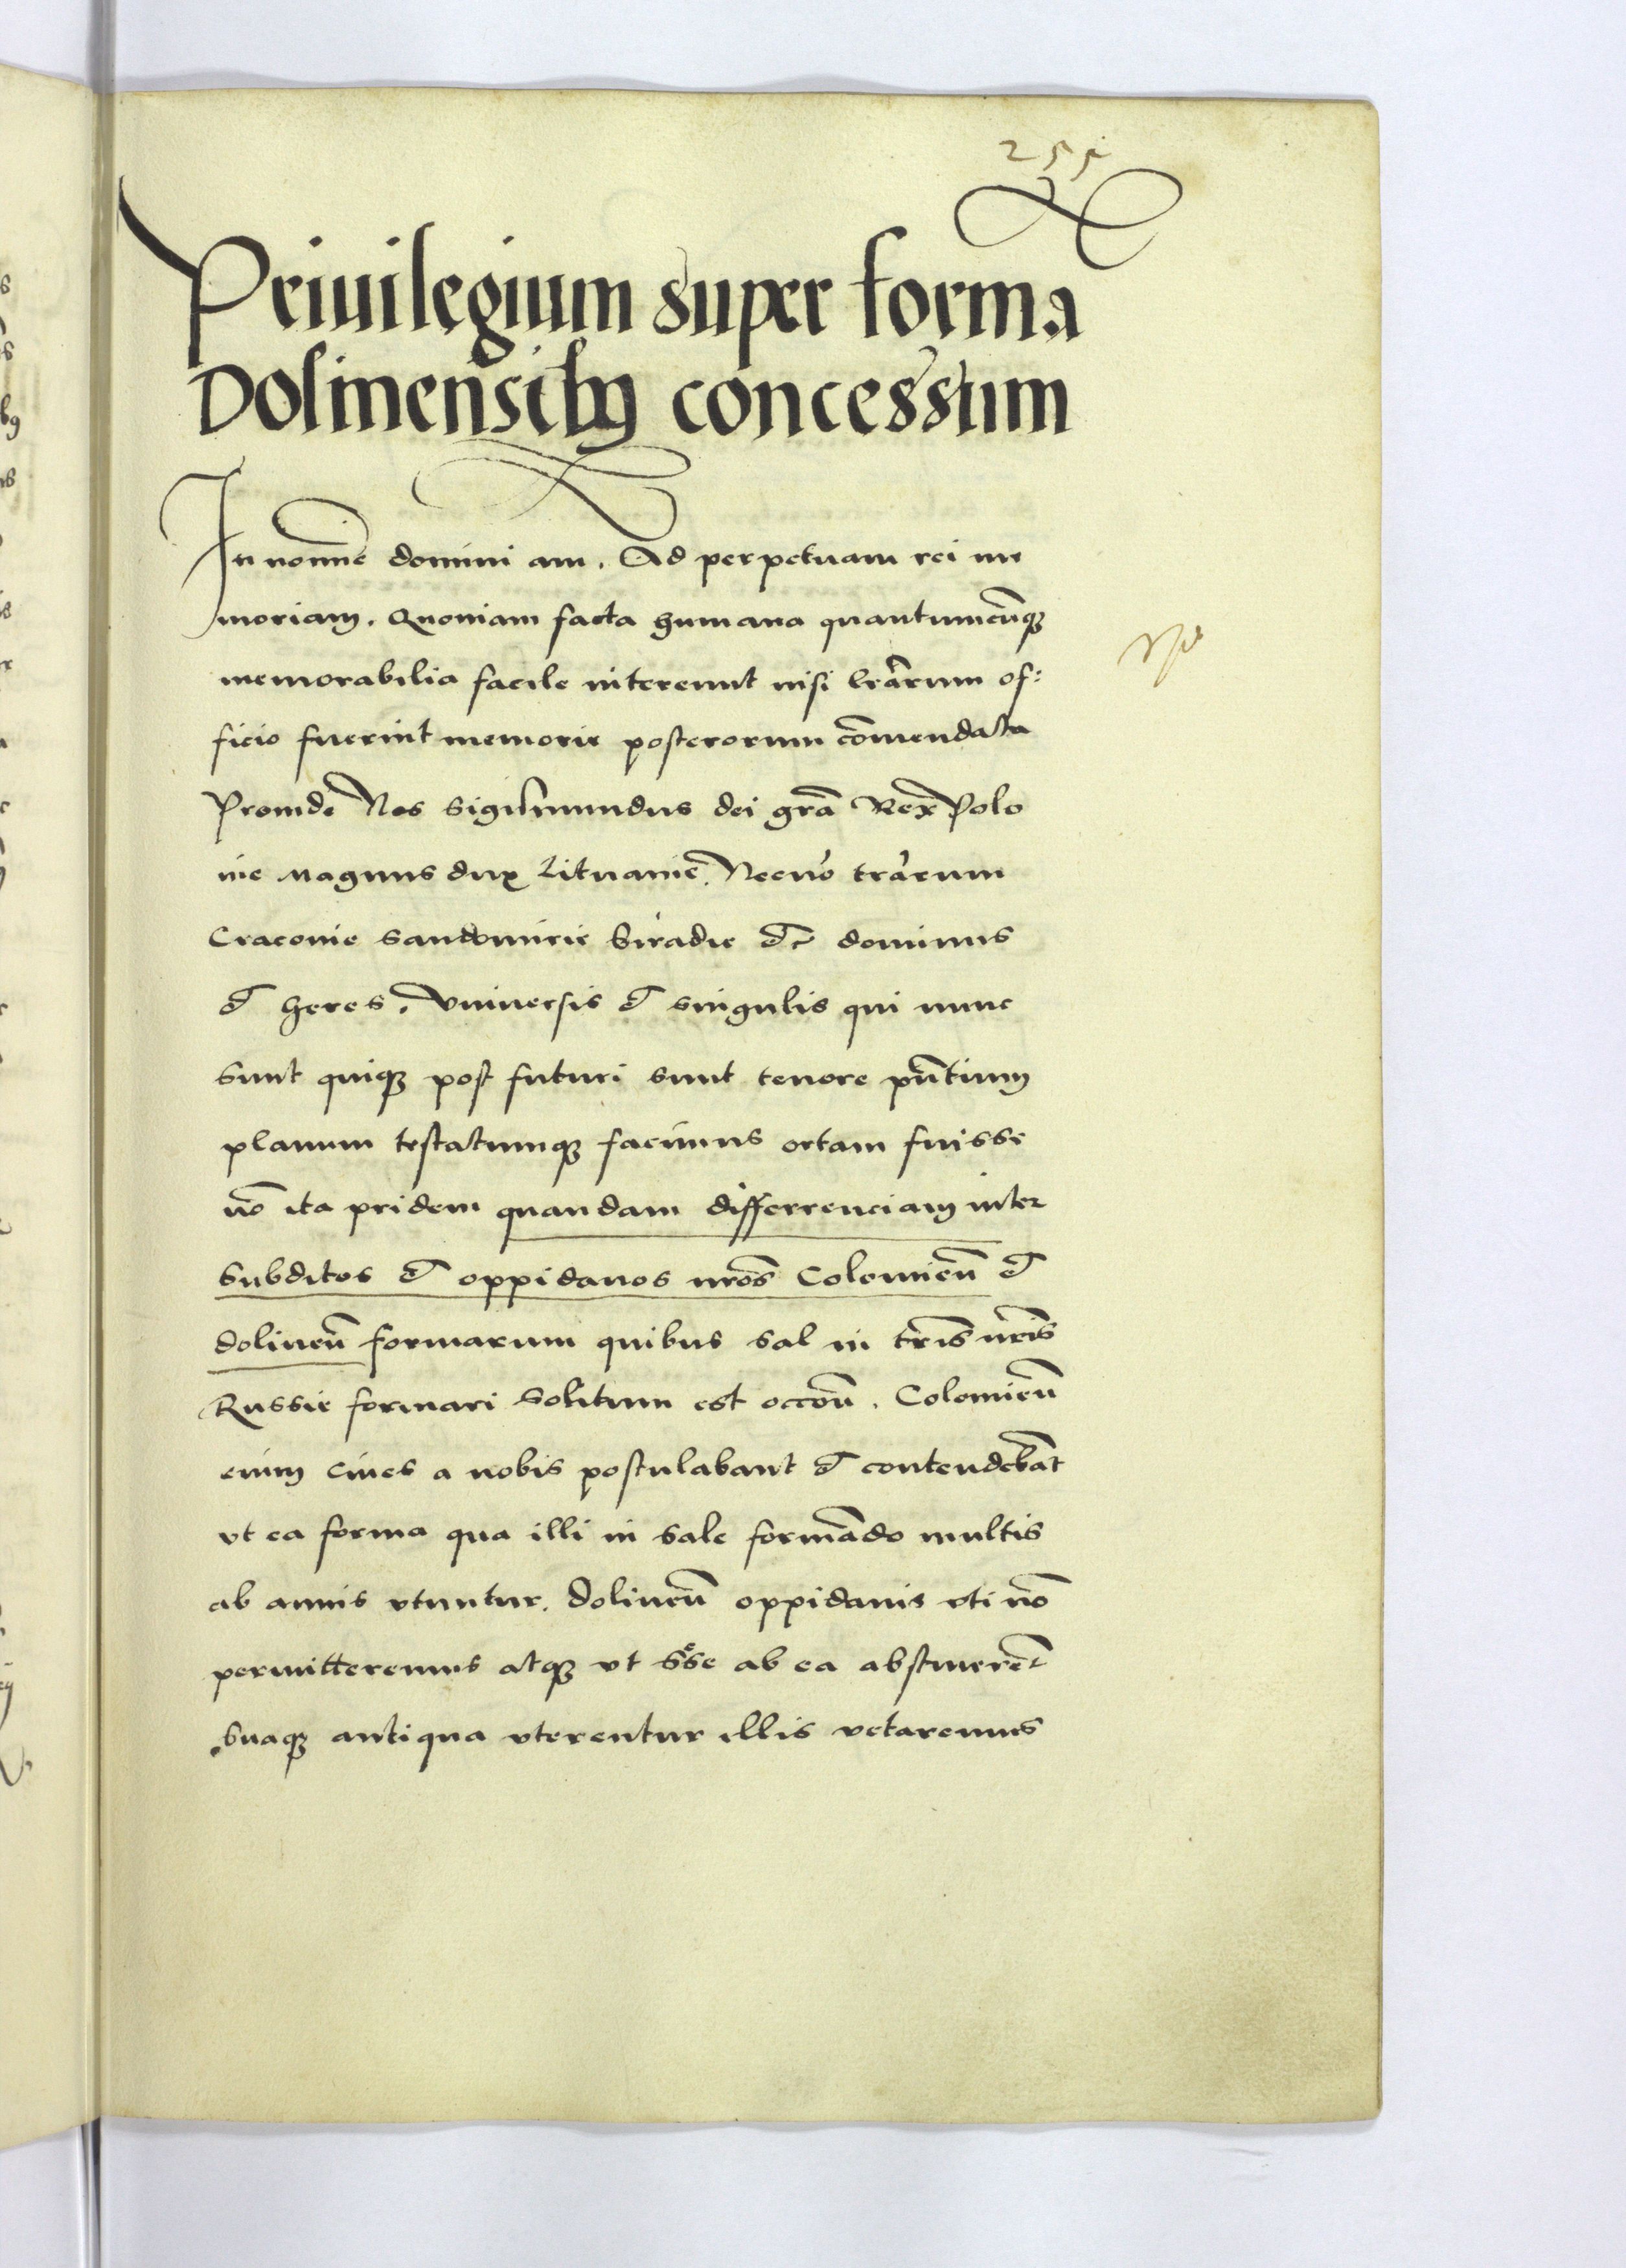 255
Priuilegium super forma
Dolinensibꝫ concessum
In nomīe domini am. Ad perpetuam rei me
moriam. Quoniam facta humana quantumcūqꝫ
memorabilia facile intereunt nisi lrārum of:
ficio fuerint memorie posterorum cōmendata
Proinde Nos Sigismundus dei grā Rex Polo
nie Magnus dux Lituanie. Necnō trārum
Cracouie Sandomirie Siradie etc dominus
et heres. Vniuersis et singulis qui nunc
sunt quiqꝫ post futuri sunt tenore pn̄tium
planum testatumqꝫ facimus ortam fuisse
nō ita pridem quandam differrenciam inter
Subditos et oppidanos nros̄ Colomien̄ et
dolinen̄ formarum quibus sal in tris̄ nris̄
Russie formari solitum est occon̄. Colomien̄
enim ciues a nobis postulabant et contendebāt
vt ea forma qua illi in sale formādo multis
ab annis vtuntur. dolinen̄ oppidanis vti nō
permitteremus atqꝫ vt sese ab ea abstinerēt
suaqꝫ antiqua vterentur illis vetaremus